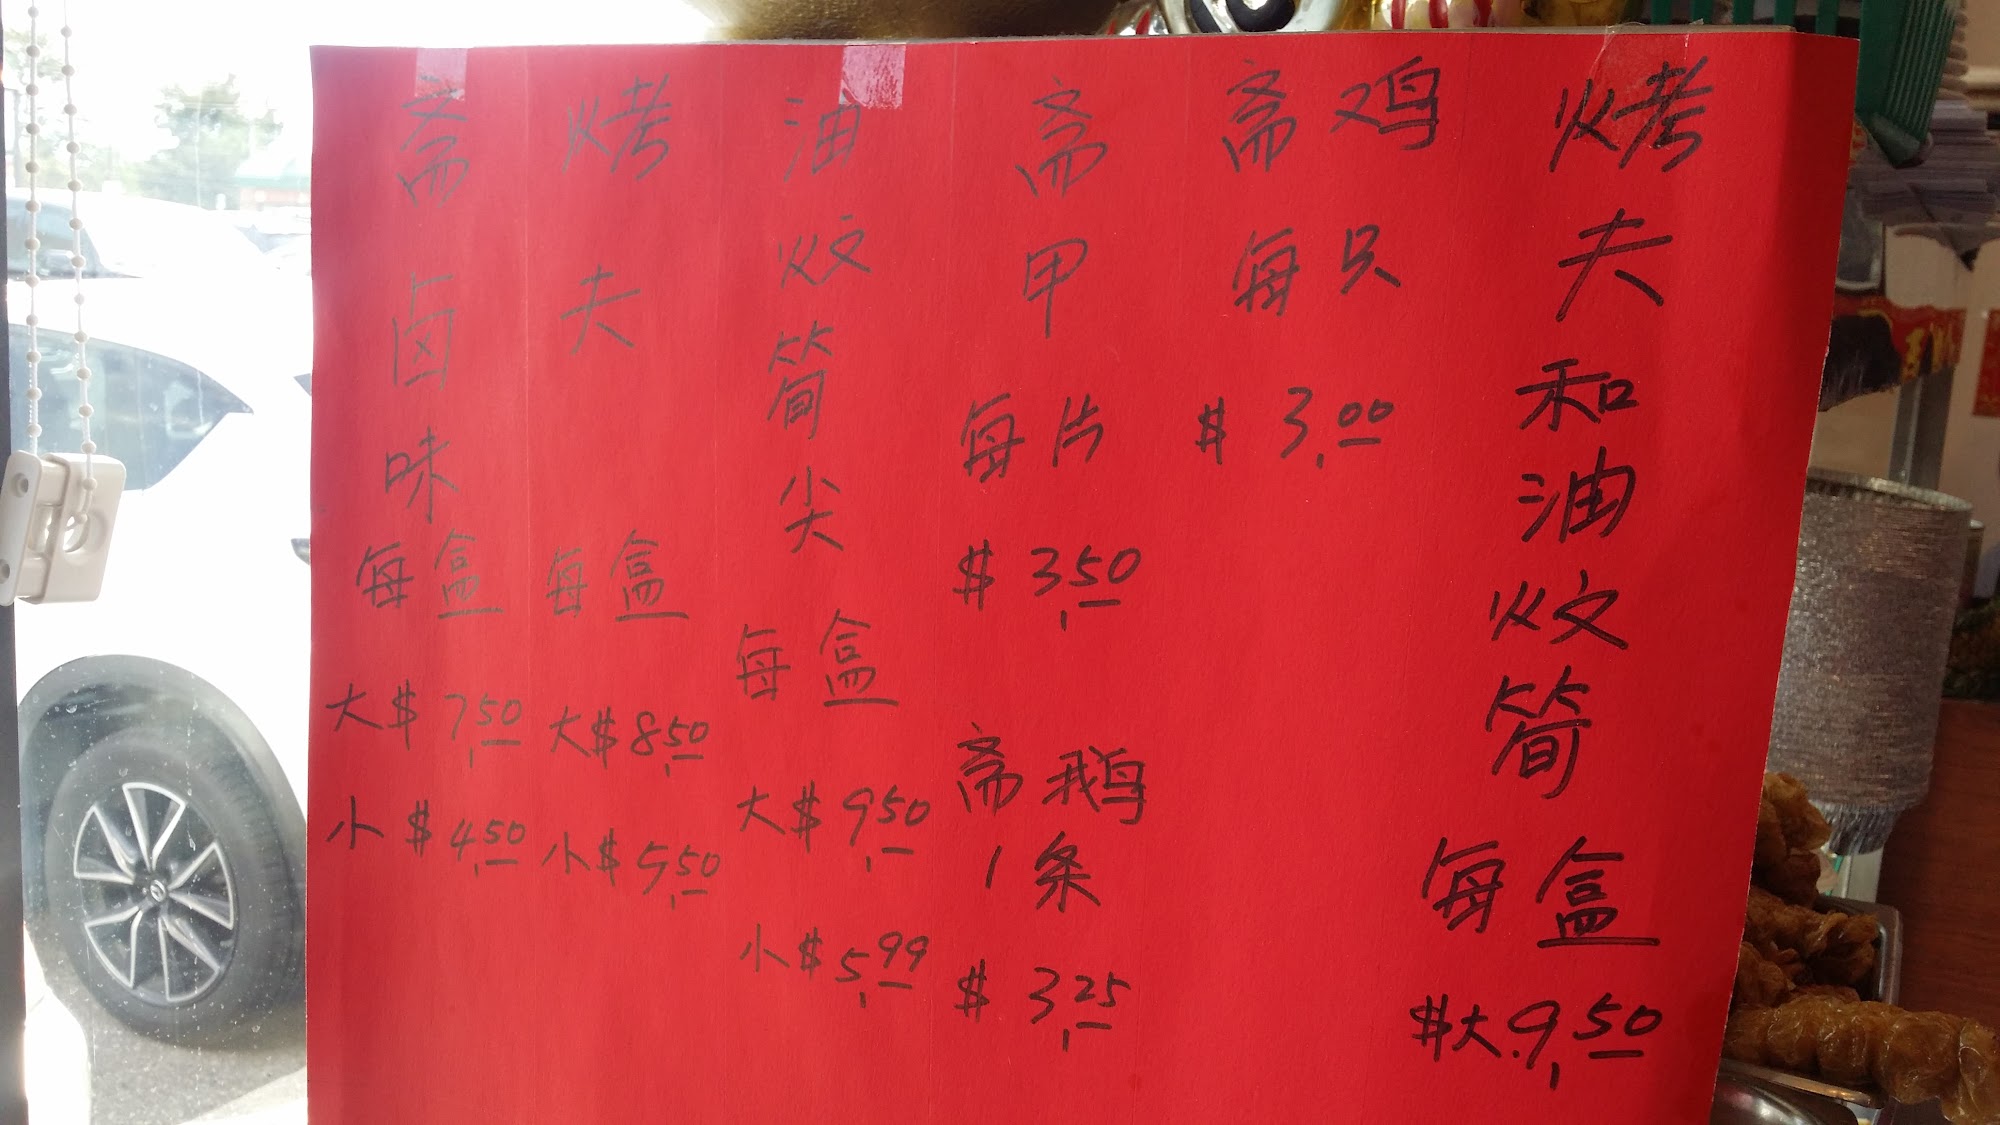 斋卤味
每盒
大$7.50
小$4.50
烤夫
每盒
大$8.50
小$5.50
油炆筍尖
每盒
大$9.50
小$5.99
斋甲
每片
$3.50
斋鹅
1条
$3.25
斋鸡
每只
$3.00
烤夫和油炆筍
每盒
$大.9.50